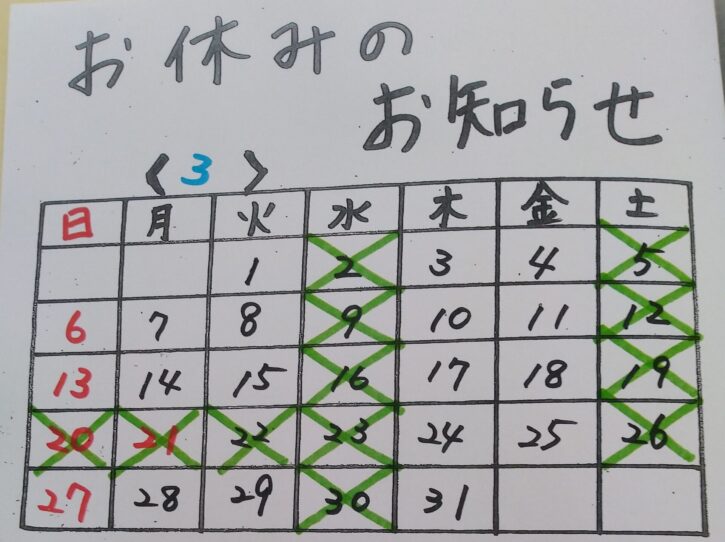 お休みの
お知らせ
〈 3 〉
日 月 火 水 木 金 土
1 2 3 4 5
6 7 8 9 10 11 12
13 14 15 16 17 18 19
20 21 22 23 24 25 26
27 28 29 30 31